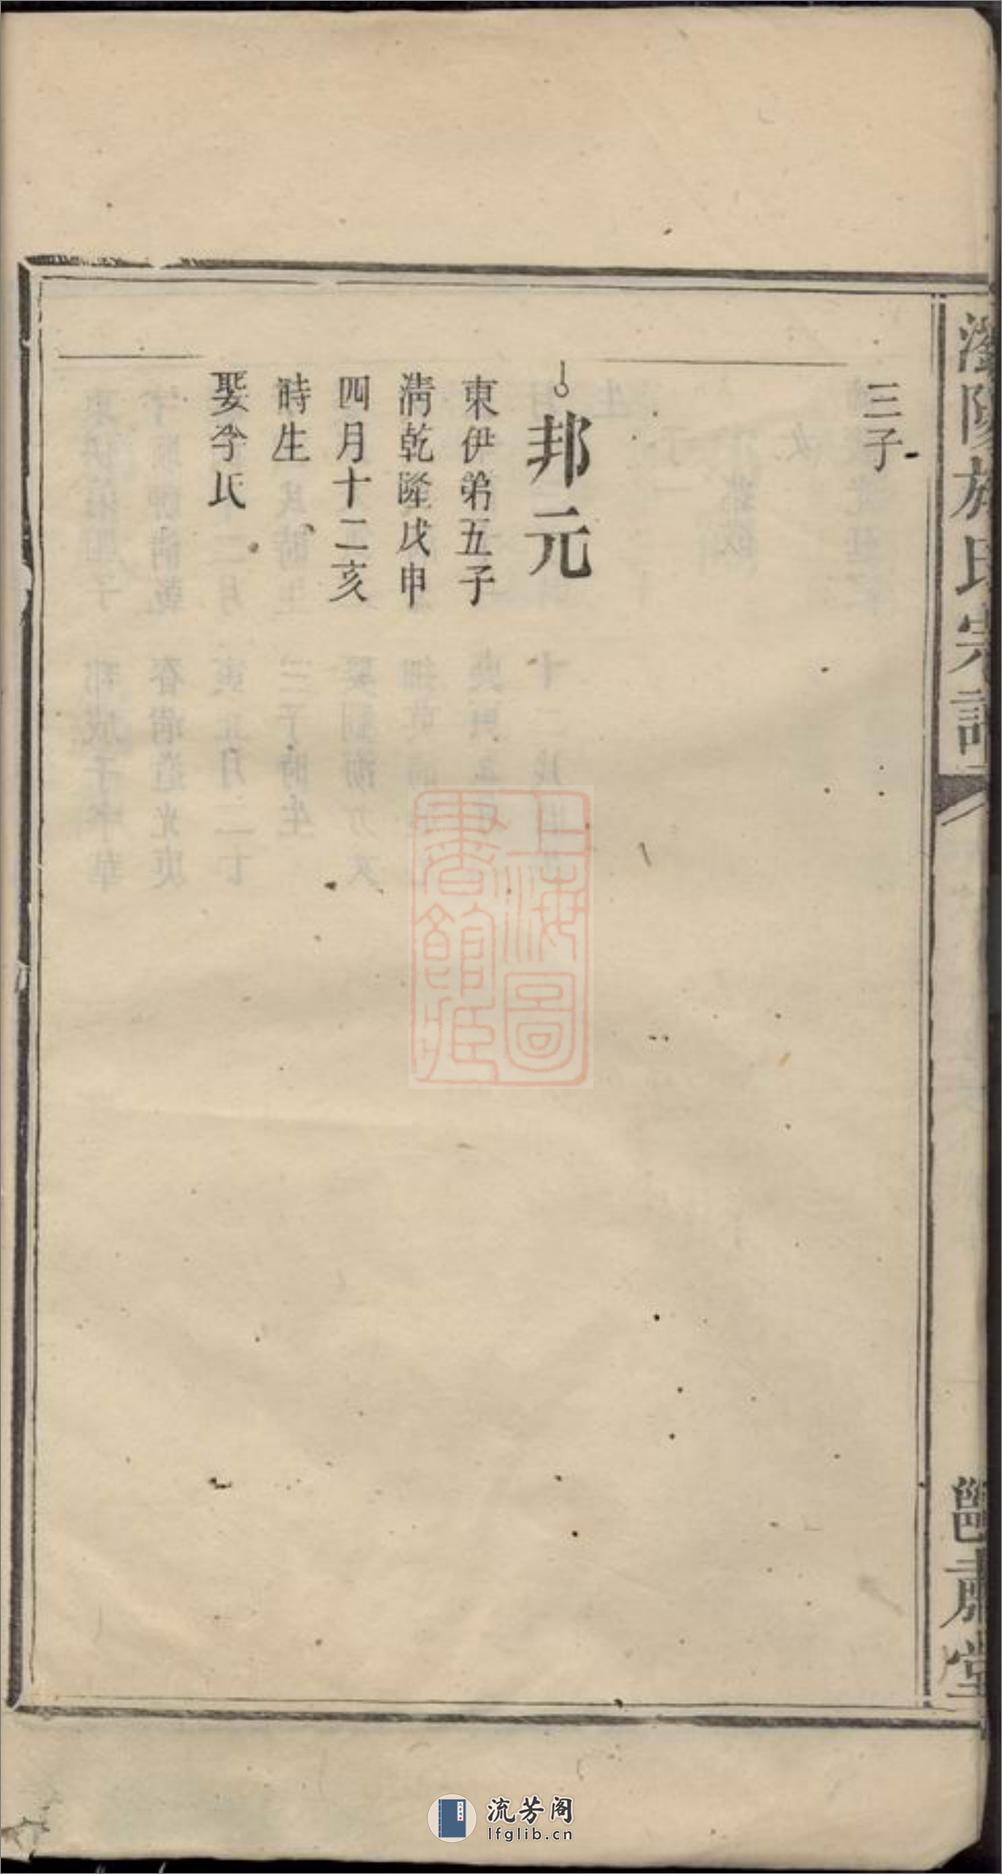 陽施氏宗譜
雝肅堂
三子
邦元
東伊第五子
清乾隆戊申
四月十二亥
時生
娶李氏
上海圖
書館藏
流芳阁
lfglib.cn